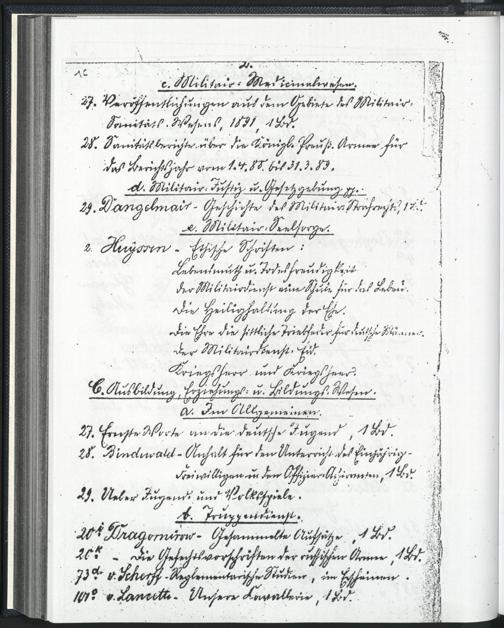 2.
16
c. Militair-Medicinalwesen.
27. Veröffentlichungen aus dem Gebiete des Militair-
Sanitäts-Wesens, 1891, 1 Bd.
28. Sanitätsberichte über die Königl. Preuß. Armee für
das Berichtsjahr vom 1.4.88. bis 31.3.89.
d. Militair-Justiz u. Gesetzgebung pp.
29. Dangelmair - Geschichte des Militair-Strafrechts, 1
e. Militair-Seelsorge.
2. Huyssen - Ethische Schriften:
Lebensmuth u. Todesfreudigkeit
der Militairdienst eine Schule für das Leben.
die Heilighaltung der Ehe.
die Ehre die sittliche Triebfeder für deutsche Männer.
der Militairdienst-Eid.
Kriegsherr und Kriegsheer.
C. Ausbildung, Erziehungs- u. Bildungs-Wesen.
a. Im Allgemeinen.
27. Ernste Worte an die deutsche Jugend 1 Bd.
28. Bindewald - Anhalt für den Unterricht des Einjährig-
Freiwilligen u. den Offizier-Aspiranten, 1 Bd.
29. Ueber Jugend- und Volksspiele.
b. Truppendienst.
20 Dragomirow - Gesammelte Aufsätze, 1 Bd.
20 - die Gefechtsvorschriften der russischen Armee, 1 Bd.
73 v. Scherff - Reglementarische Studien, im Erscheinen.
v. Lancette - Unsere Kavallerie, 1 Bd.